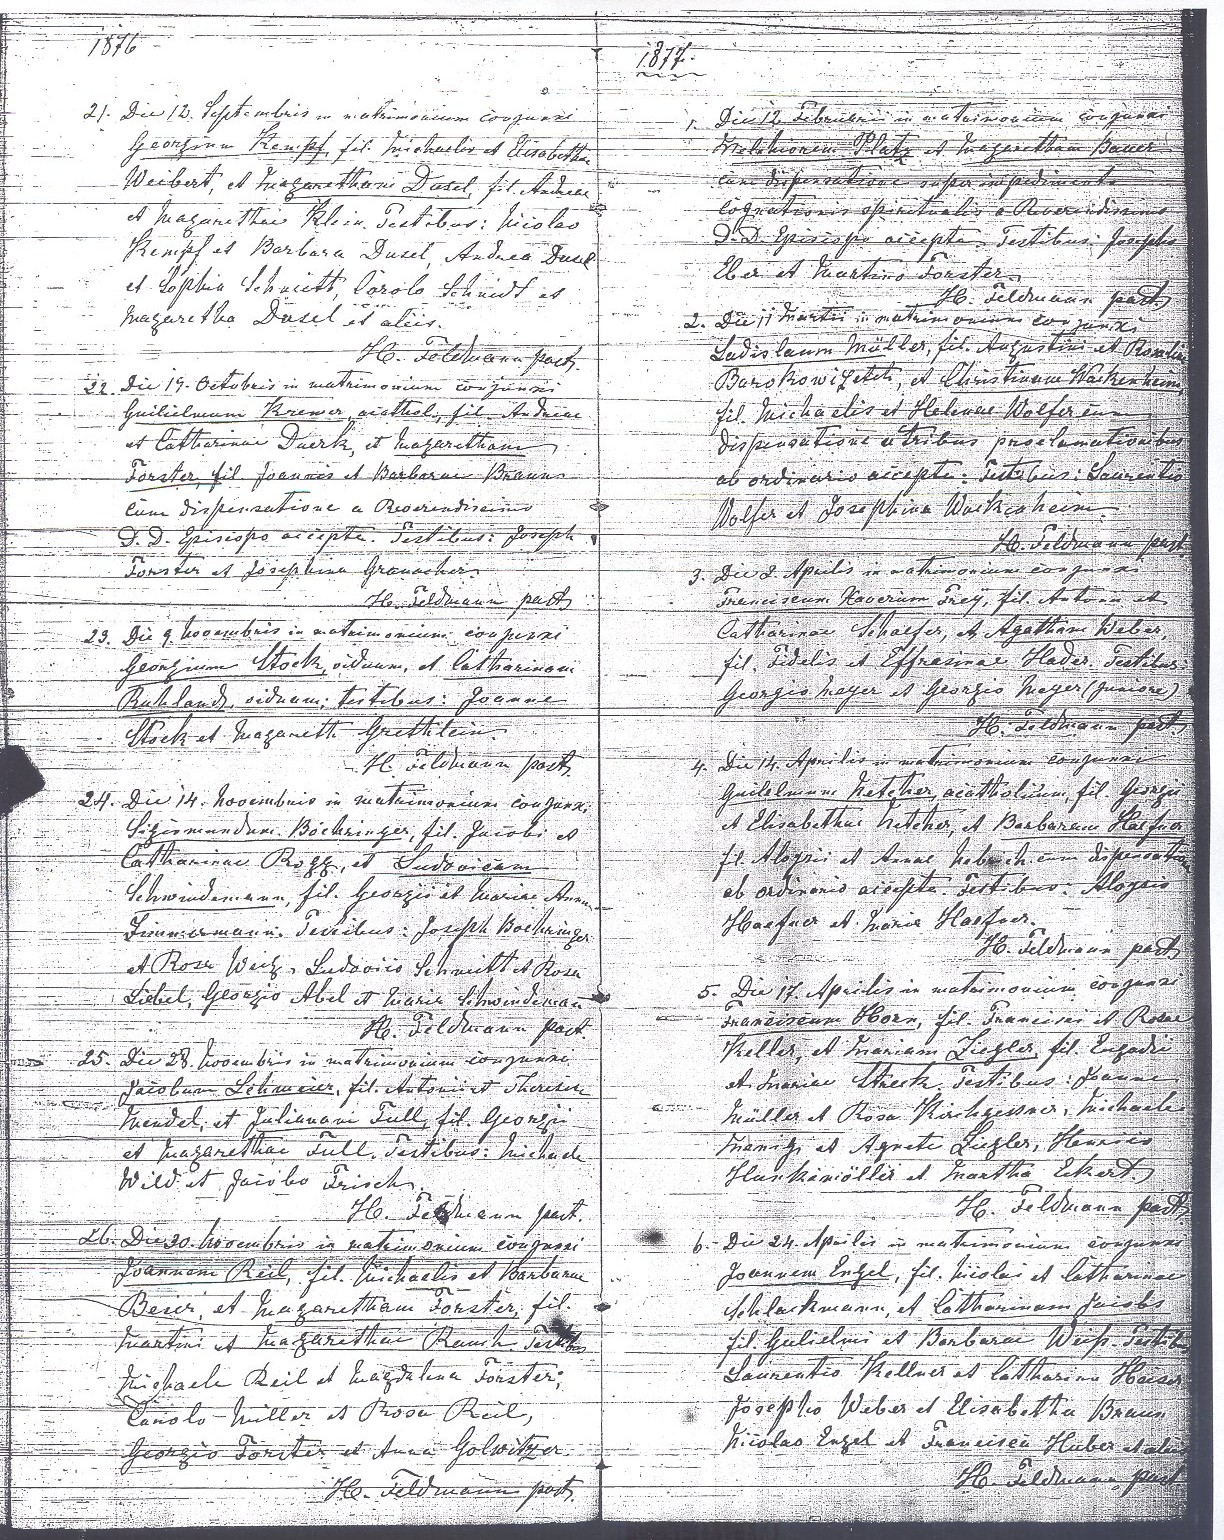 1876
21. Die 12. Septembris in matrimonium conjunxi
Georgium Kempf, fil. Michaelis et Elisabethae
Weibert, et Margaretham Dusel, fil. Andreae
et Margarethae Klein. Testibus: Nicolao
Kempf et Barbara Dusel, Andrea Dusel
et Sophia Schmitt, Carolo Schmidt et
Margaretha Dusel et aliis.
H. Feldmann past.
22. Die 19. Octobris in matrimonium conjunxi
Guilielmum Kremer, acathol., fil. Andreae
et Catharinae Duerk, et Margaretham
Forster, fil. Joannis et Barbarae Braun
cum dispensatione a Reverendissimo
D. D. Episcopo accepta. Testibus: Joseph
Forster et Josephina Granacher.
H. Feldmann past.
23. Die 9. Novembris in matrimonium conjunxi
Georgium Stock, viduum, et Catharinam
Ruhland, viduam; testibus: Joanne
Stock et Margareth. Grethlein.
H. Feldmann past.
24. Die 14. Novembris in matrimonium conjunxi
Sigismundum Boehringer, fil. Jacobi et
Catharinae Rogg, et Ludovicam
Schwindemann, fil. Georgii et Mariae Annae
Zimmermann. Testibus: Joseph Boehringer
et Rosa Weiz, Ludovico Schmitt et Rosa
Liebel, Georgio Abel et Maria Schwindeman
H. Feldmann past.
25. Die 28. Novembris in matrimonium conjunxi
Jacobum Lehmeier, fil. Antonii et Theresiae
Mendel, et Julianam Full, fil. Georgii
et Margarethae Full. Testibus: Michaele
Wild et Jacobo Frisch.
H. Feldmann past.
26. Die 30. Novembris in matrimonium conjunxi
Joannem Reil, fil. Michaelis et Barbarae
Beier, et Margaretham Forster, fil.
Martini et Margarethae Rauch. Testibus
Michaele Reil et Magdalena Forster;
Carolo Miller et Rosa Reil,
Georgio Forster et Anna Golwitzer.
H. Feldmann past.
1877.
1. Die 12. Februarii in matrimonium conjunxi
Melchiorem Platz et Margaretham Bauer
cum dispensatione super impedimento
cognationis spiritualis a Reverendissimo
D. D. Episcopo accepta. Testibus: Josepho
Eber et Martino Forster.
H. Feldmann past.
2. Die 11 Martii in matrimonium conjunxi
Ladislaum Müller, fil. Augustini et Rosaliae
et Christinam Wackenheim,
fil. Michaelis et Helenae Wolfer cum
dispensatione a tribus proclamationibus
ab ordinario accepta. Testibus: Laurentio
Wolfer et Josephina Wackenheim.
H. Feldmann past.
3. Die 8. Aprilis in matrimonium conjunxi
Franciscum Xaverium Frey, fil. Antonii et
Catharinae Schaefer, et Agatham Weber,
fil. Fidelis et Effrosinae Hader. Testibus:
Georgio Meyer et Georgio Meyer (Juniore)
H. Feldmann past.
4. Die 14. Aprilis in matrimonium conjunxi
Guilelmum Netcher, acatholicum, fil. Georgii
et Elisabethae Netcher, et Barbaram Haefner
fil. Aloysii et Annae cum dispensatione
ab ordinario accepta. Testibus: Aloysio
Haefner et Maria Haefner.
H. Feldmann past.
5. Die 17. Aprilis in matrimonium conjunxi
Franciscum Horn, fil. Francisci et Rosae
Keller, et Mariam Ziegler, fil. Engadii
et Mariae Streck. Testibus: Joanne
Müller et Rosa Kirchgessner, Michaele
et Agnete Ziegler, Henrico
Hunkemöller et Martha Eckert.
H. Feldmann past.
6. Die 24. Aprilis in matrimonium conjunxi
Joannem Engel, fil. Nicolai et Catharinae
Schlackmann, et Catharinam Jacobs
fil. Gulielmi et Barbarae Weiß. Testibus
Laurentio Kellner et Catharina Heiser
Josepho Weber et Elisabetha Braun
Nicolao Engel et Francisca Huber et aliis
H. Feldmann past